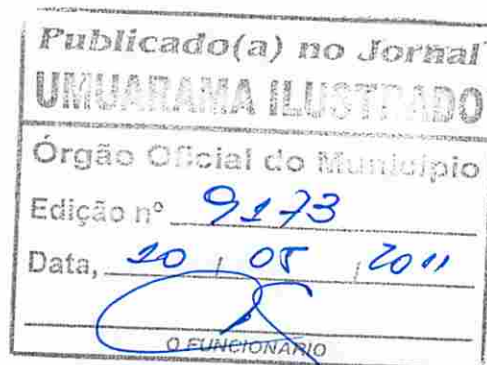 Publicado(a) no Jornal
UMUARAMA ILUSTRADO
Órgão Oficial do Município
Edição nº 9173
Data, / 05 / 2011
O FUNCIONÁRIO